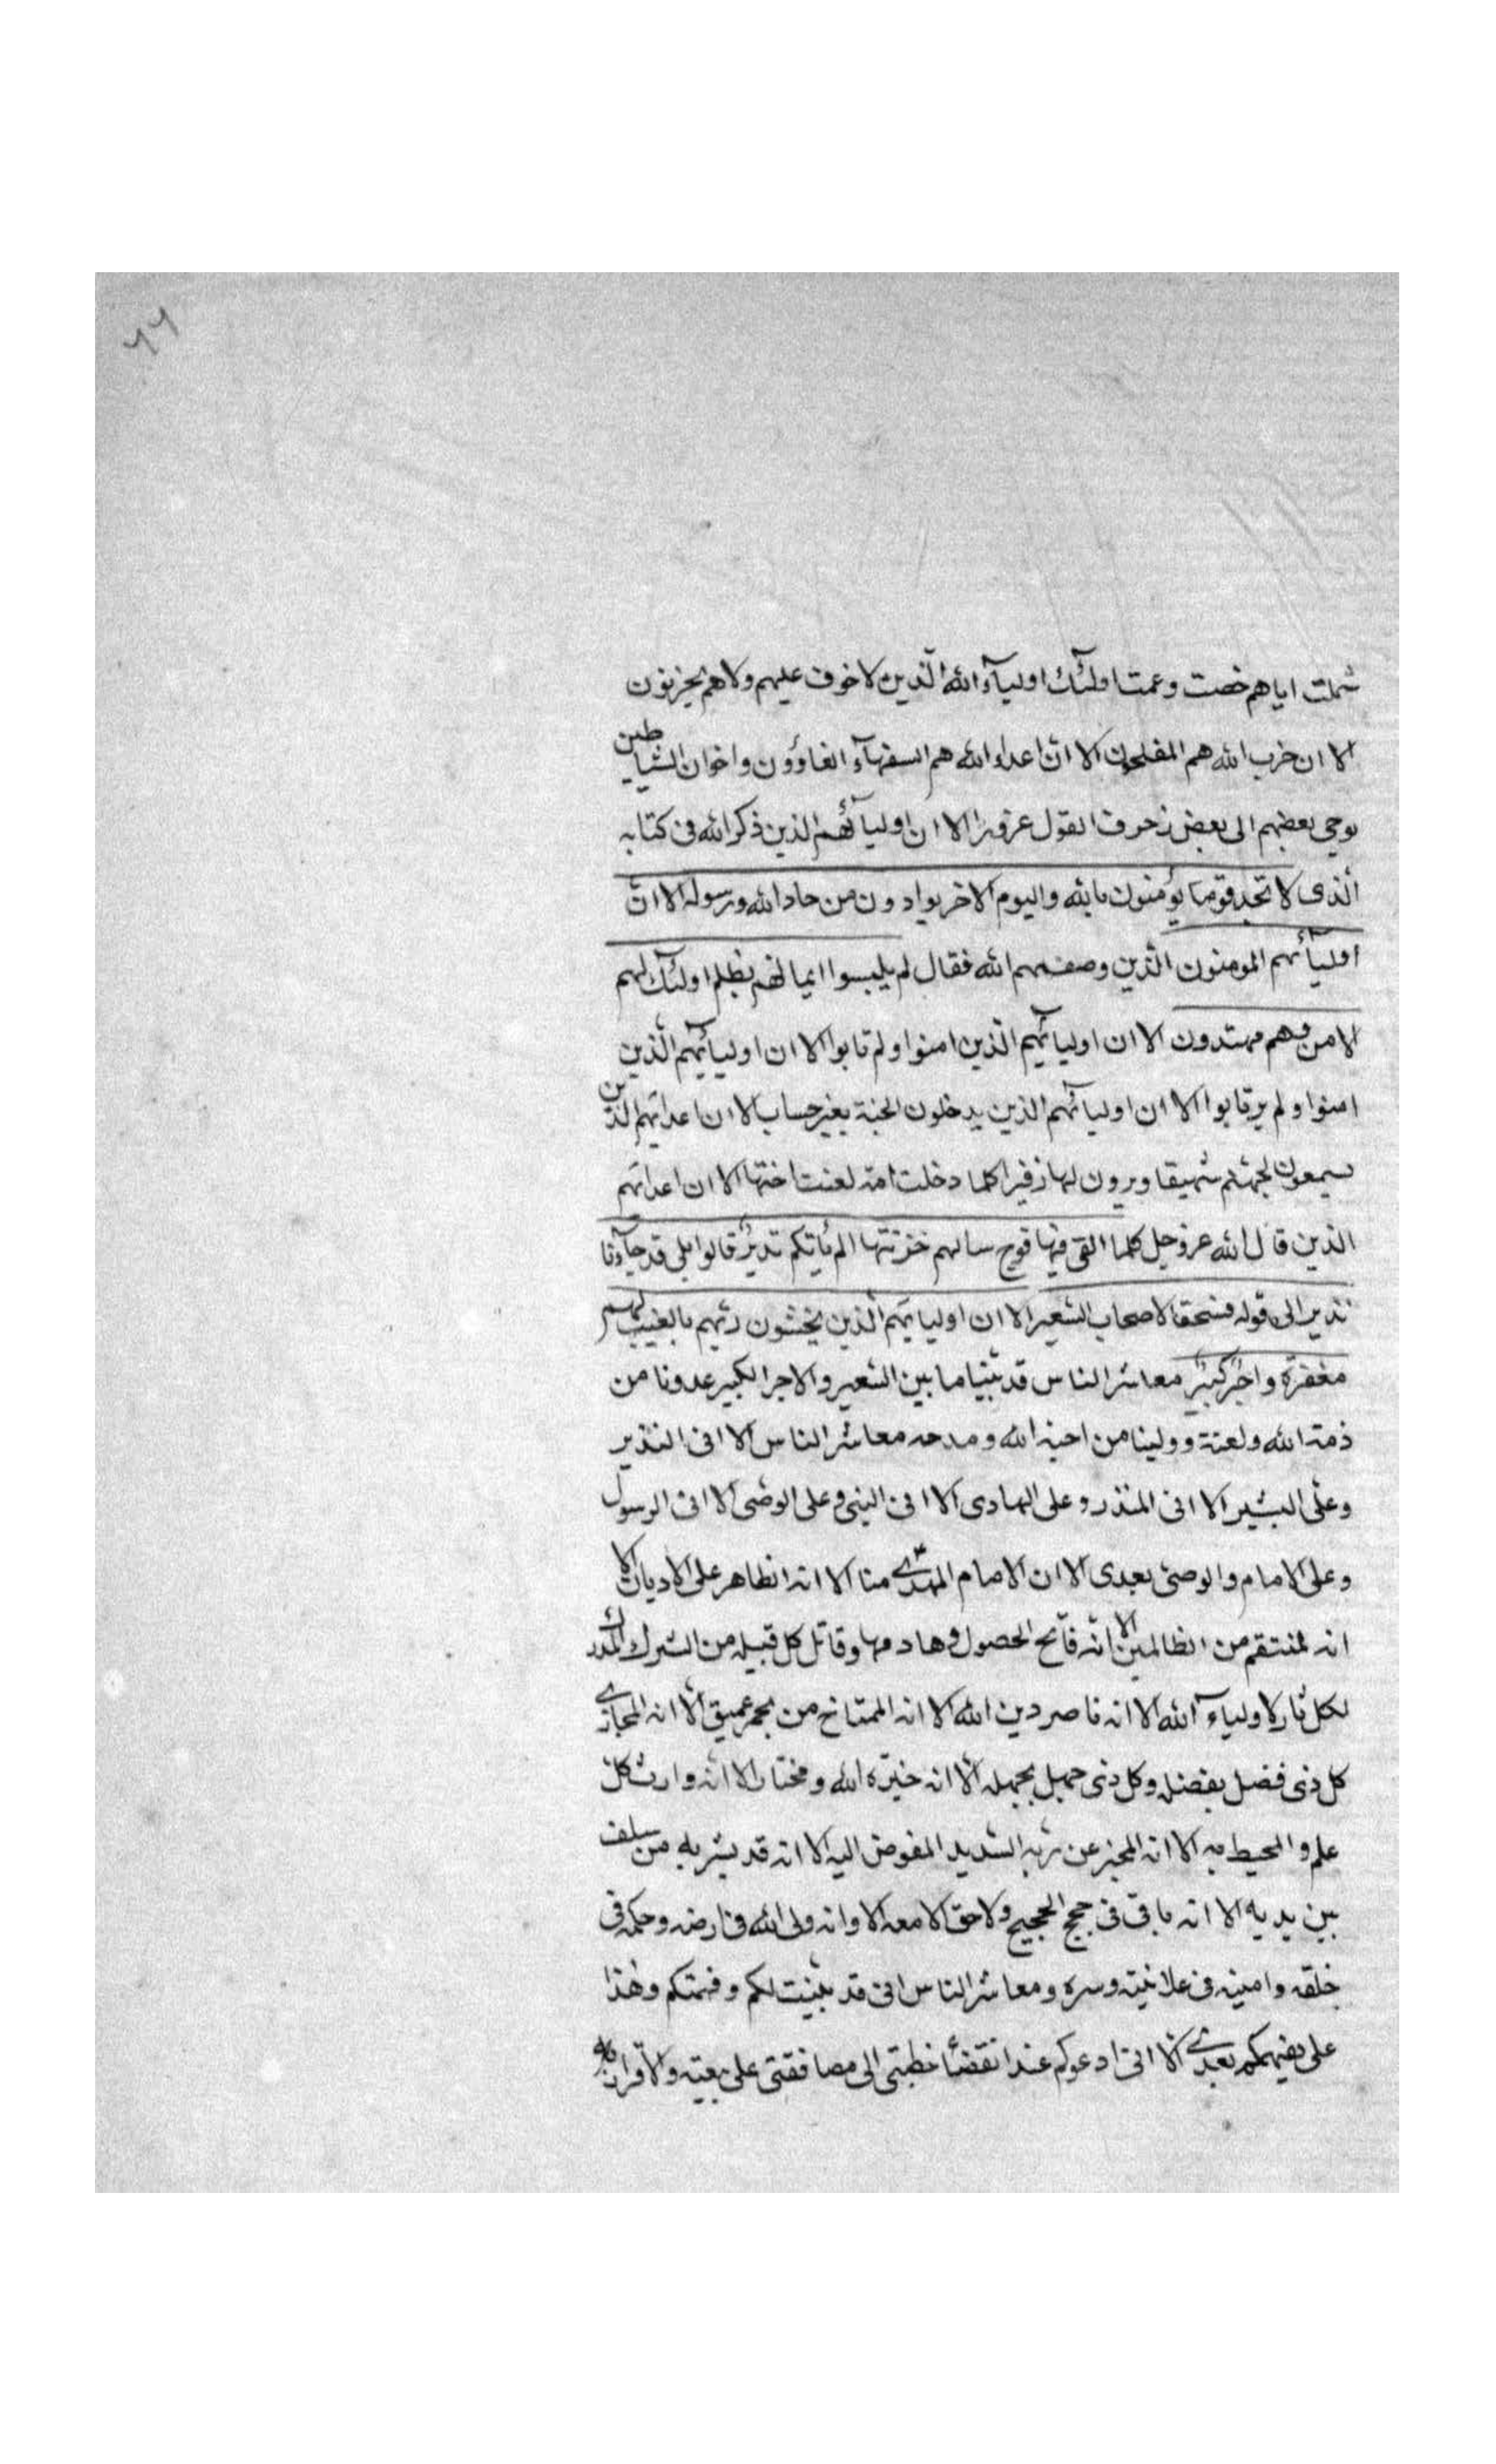 ٦٦
شملت اياهم خصت وعمت اولئك اولياء الله الّذين لا خوف عليهم ولا هم يحزنون
الا ان حزب الله هم المفلحون الا انّ اعداء الله هم السفهآء الغاوون واخوان الشياطين
يوحى بعضهم الى بعض زخرف القول غرورا الا ان اوليآئهم الذين ذكر الله فى كتابه
الّذى لا تجد قوما يؤمنون بالله واليوم الاخر يوادون من حاد الله ورسوله الا انّ
اوليآئهم المومنون الّذين وصفهم الله فقال لم يلبسوا ايمانهم بظلم اولئك لهم
الامن وهم مهتدون الا ان اوليآئهم الّذين امنوا ولم تابوا الا ان اوليآئهم الّذين
امنوا ولم يرتابوا الا ان اوليآئهم الذين يدخلون الجنة بغير حساب الا ان اعدائهم الذين
يسمعون لجهنم شهيقا ويرون لها زفيرا كلما دخلت امة لعنت اختها الا ان اعدائهم
الذين قال الله عز وجل كلما القى فيها فوج سالهم خزنتها الم يأتكم نذير قالوا بلى قد جآءنا
نذير الى قوله فسحقا لاصحاب السّعير الا ان اوليائهم الّذين يخشون ربّهم بالغيب لهم
مغفرة واجر كبير معاشر الناس قد بيّنا ما بين السّعير والاجر الكبير عدونا من
ذمه الله ولعنه وولينا من احبه الله ومدحه معاشر الناس الا انى النذير
وعلى البشير الا انى المنذر وعلى الهادى الا انى النبى وعلى الوصى الا انى الرسول
وعلى الامام والوصى بعدى الا ان الامام المهدى منا الا انه الظاهر على الاديان الا
انه لمنتقم من الظالمين الا انه فاتح الحصول وهادمها وقاتل كل قبيله من الشرك المدرك
لكل ثار لاولياء الله الا انه ناصر دين الله الا انه الممتاح من بحر عميق الا انه المجازى
كل ذى فضل بفضله وكل ذى جهل بجهله الا انه خيرة الله ومختاره الا انه وارث كل
علم والمحيط به الا انه المخبر عن ربه السّديد المفوض اليه الا انه قد بشر به من سلف
بين يديه الا انه باقى فى حجج الحجيج ولا حق الا معه الا وانه ولى الله فى ارضه وحكمه فى
خلقه وامينه فى علانيته وسره ومعاشر الناس انى قد بيّنت لكم وفهمتكم وهذا
على يفهمكم بعدى الا انى ادعوكم عند انقضا خطبتى الى مصافقتى على بيعته والاقرار به